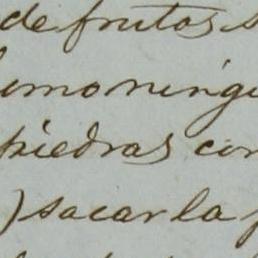 de frutas s
como ningu
piedras con
) sacar la